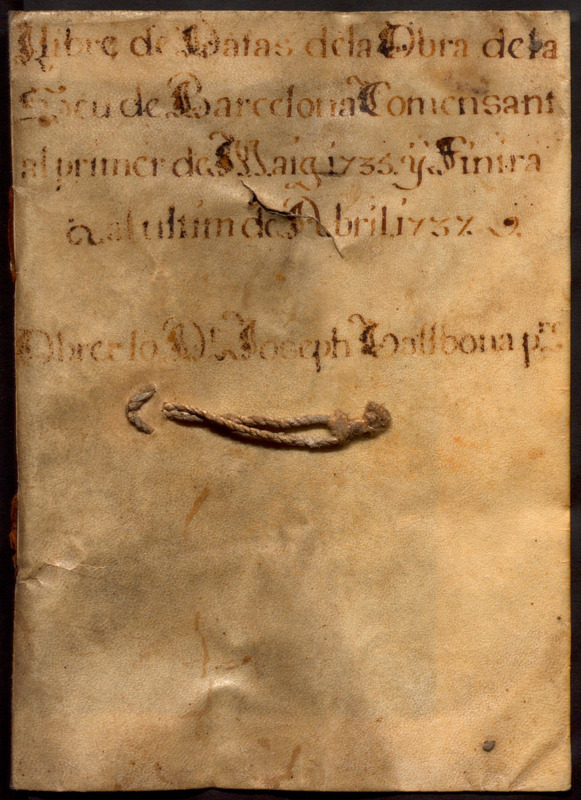 Llibre de Datas dela Obra dela
Seu de Barcelona Comensant
al primer de Maig 1735. ÿ Finira
al ultim de Abril 1737.
Obrer lo Dr. Joseph Vallbona pre.